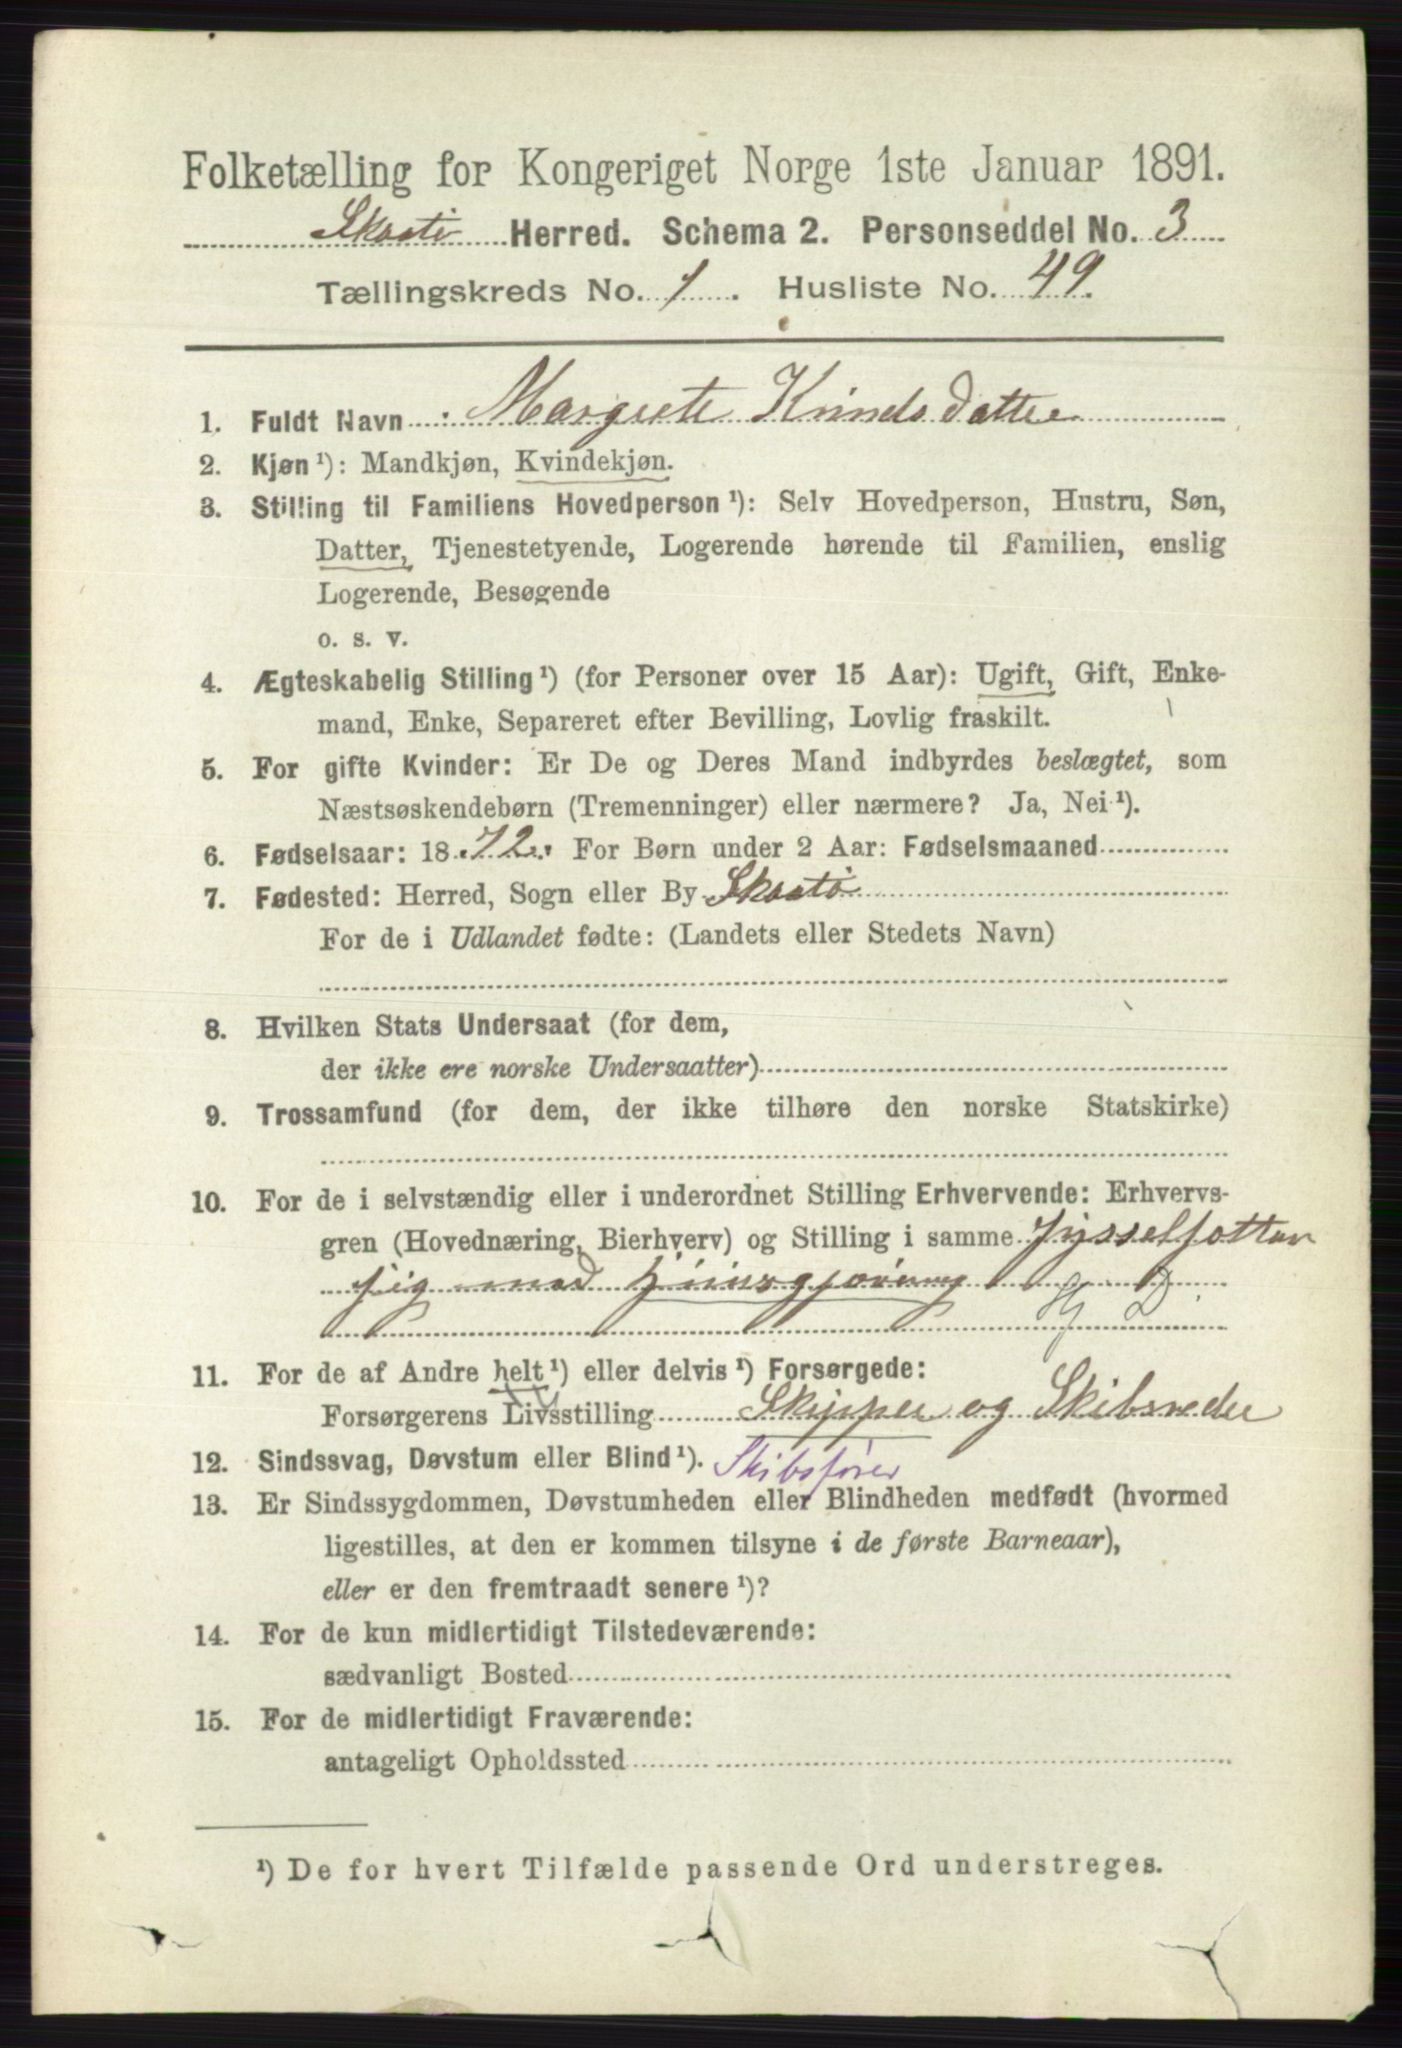 Folketælling for Kongeriget Norge 1ste Januar 1891.
Skaatö Herred. Schema 2. Personseddel No. 3
Tællingskreds No. 1. Husliste No. 49.
1. Fuldt Navn : Margrete Knudsdatter
2. Kjøn ¹): Mandkjøn, Kvindekjøn.
3. Stilling til Familiens Hovedperson ¹): Selv Hovedperson, Hustru, Søn,
Datter, Tjenestetyende, Logerende hørende til Familien, enslig
Logerende, Besøgende
o. s. v.
4. Ægteskabelig Stilling ¹) (for Personer over 15 Aar): Ugift, Gift, Enke-
mand, Enke, Separeret efter Bevilling, Lovlig fraskilt.
5. For gifte Kvinder: Er De og Deres Mand indbyrdes beslægtet, som
Næstsøskendebørn (Tremenninger) eller nærmere? Ja, Nei ¹).
6. Fødselsaar: 1872. For Børn under 2 Aar: Fødselsmaaned
7. Fødested: Herred, Sogn eller By Skaatö
For de i Udlandet fødte: (Landets eller Stedets Navn)
8. Hvilken Stats Undersaat (for dem,
der ikke ere norske Undersaatter)
9. Trossamfund (for dem, der ikke tilhøre den norske Statskirke)
10. For de i selvstændig eller i underordnet Stilling Erhvervende: Erhvervs-
gren (Hovednæring, Bierhverv) og Stilling i samme Sysselsætter
sig med Huusgjerning H D
11. For de af Andre helt ¹) eller delvis ¹) Forsørgede:
Forsørgerens Livsstilling Skipper og Skibsreder
12. Sindssvag, Døvstum eller Blind ¹). Skibsfører
13. Er Sindssygdommen, Døvstumheden eller Blindheden medfødt (hvormed
ligestilles, at den er kommen tilsyne i de første Barneaar),
eller er den fremtraadt senere ¹)?
14. For de kun midlertidigt Tilstedeværende:
sædvanligt Bosted
15. For de midlertidigt Fraværende:
antageligt Opholdssted
¹) De for hvert Tilfælde passende Ord understreges.